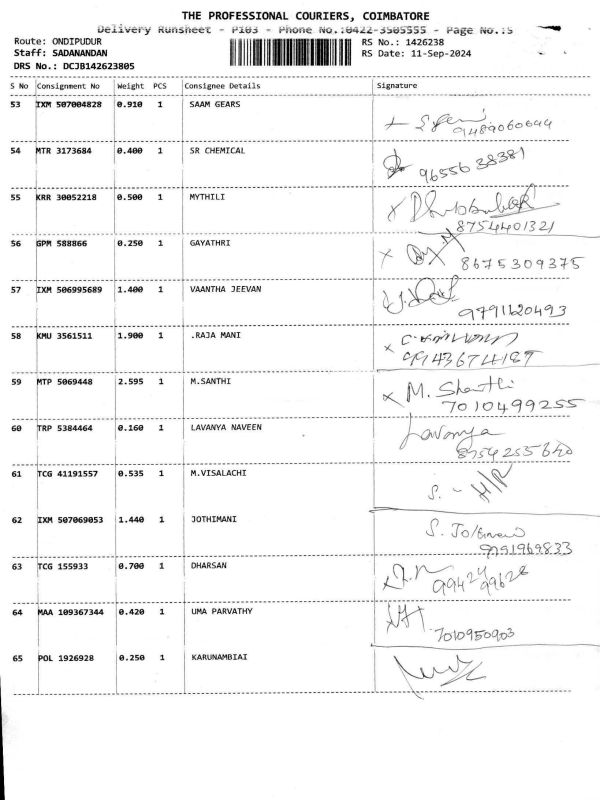 THE PROFESSIONAL COURIERS, COIMBATORE
Delivery Runsheet - P103 - Phone No.:0422-3505555 - Page No.:5
Route: ONDIPUDUR
RS No.: 1426238
Staff: SADANANDAN
RS Date: 11-Sep-2024
DRS No.: DCJB142623805
S No Consignment No Weight PCS Consignee Details Signature
53 IXM 507004828 0.910 1 SAAM GEARS
9489060644
54 MTR 3173684 0.400 1 SR CHEMICAL
9655638381
55 KRR 30052218 0.500 1 MYTHILI
8754401321
56 GPM 588866 0.250 1 GAYATHRI
8675309375
57 IXM 506995689 1.400 1 VAANTHA JEEVAN
9791120493
58 KMU 3561511 1.900 1 .RAJA MANI
59 MTP 5069448 2.595 1 M.SANTHI
M. Shanthi
7010499255
60 TRP 5384464 0.160 1 LAVANYA NAVEEN
Lavanya
61 TCG 41191557 0.535 1 M.VISALACHI
S. - H/R
62 IXM 507069053 1.440 1 JOTHIMANI
63 TCG 155933 0.700 1 DHARSAN
99424 99628
64 MAA 109367344 0.420 1 UMA PARVATHY
7010950903
65 POL 1926928 0.250 1 KARUNAMBIAI